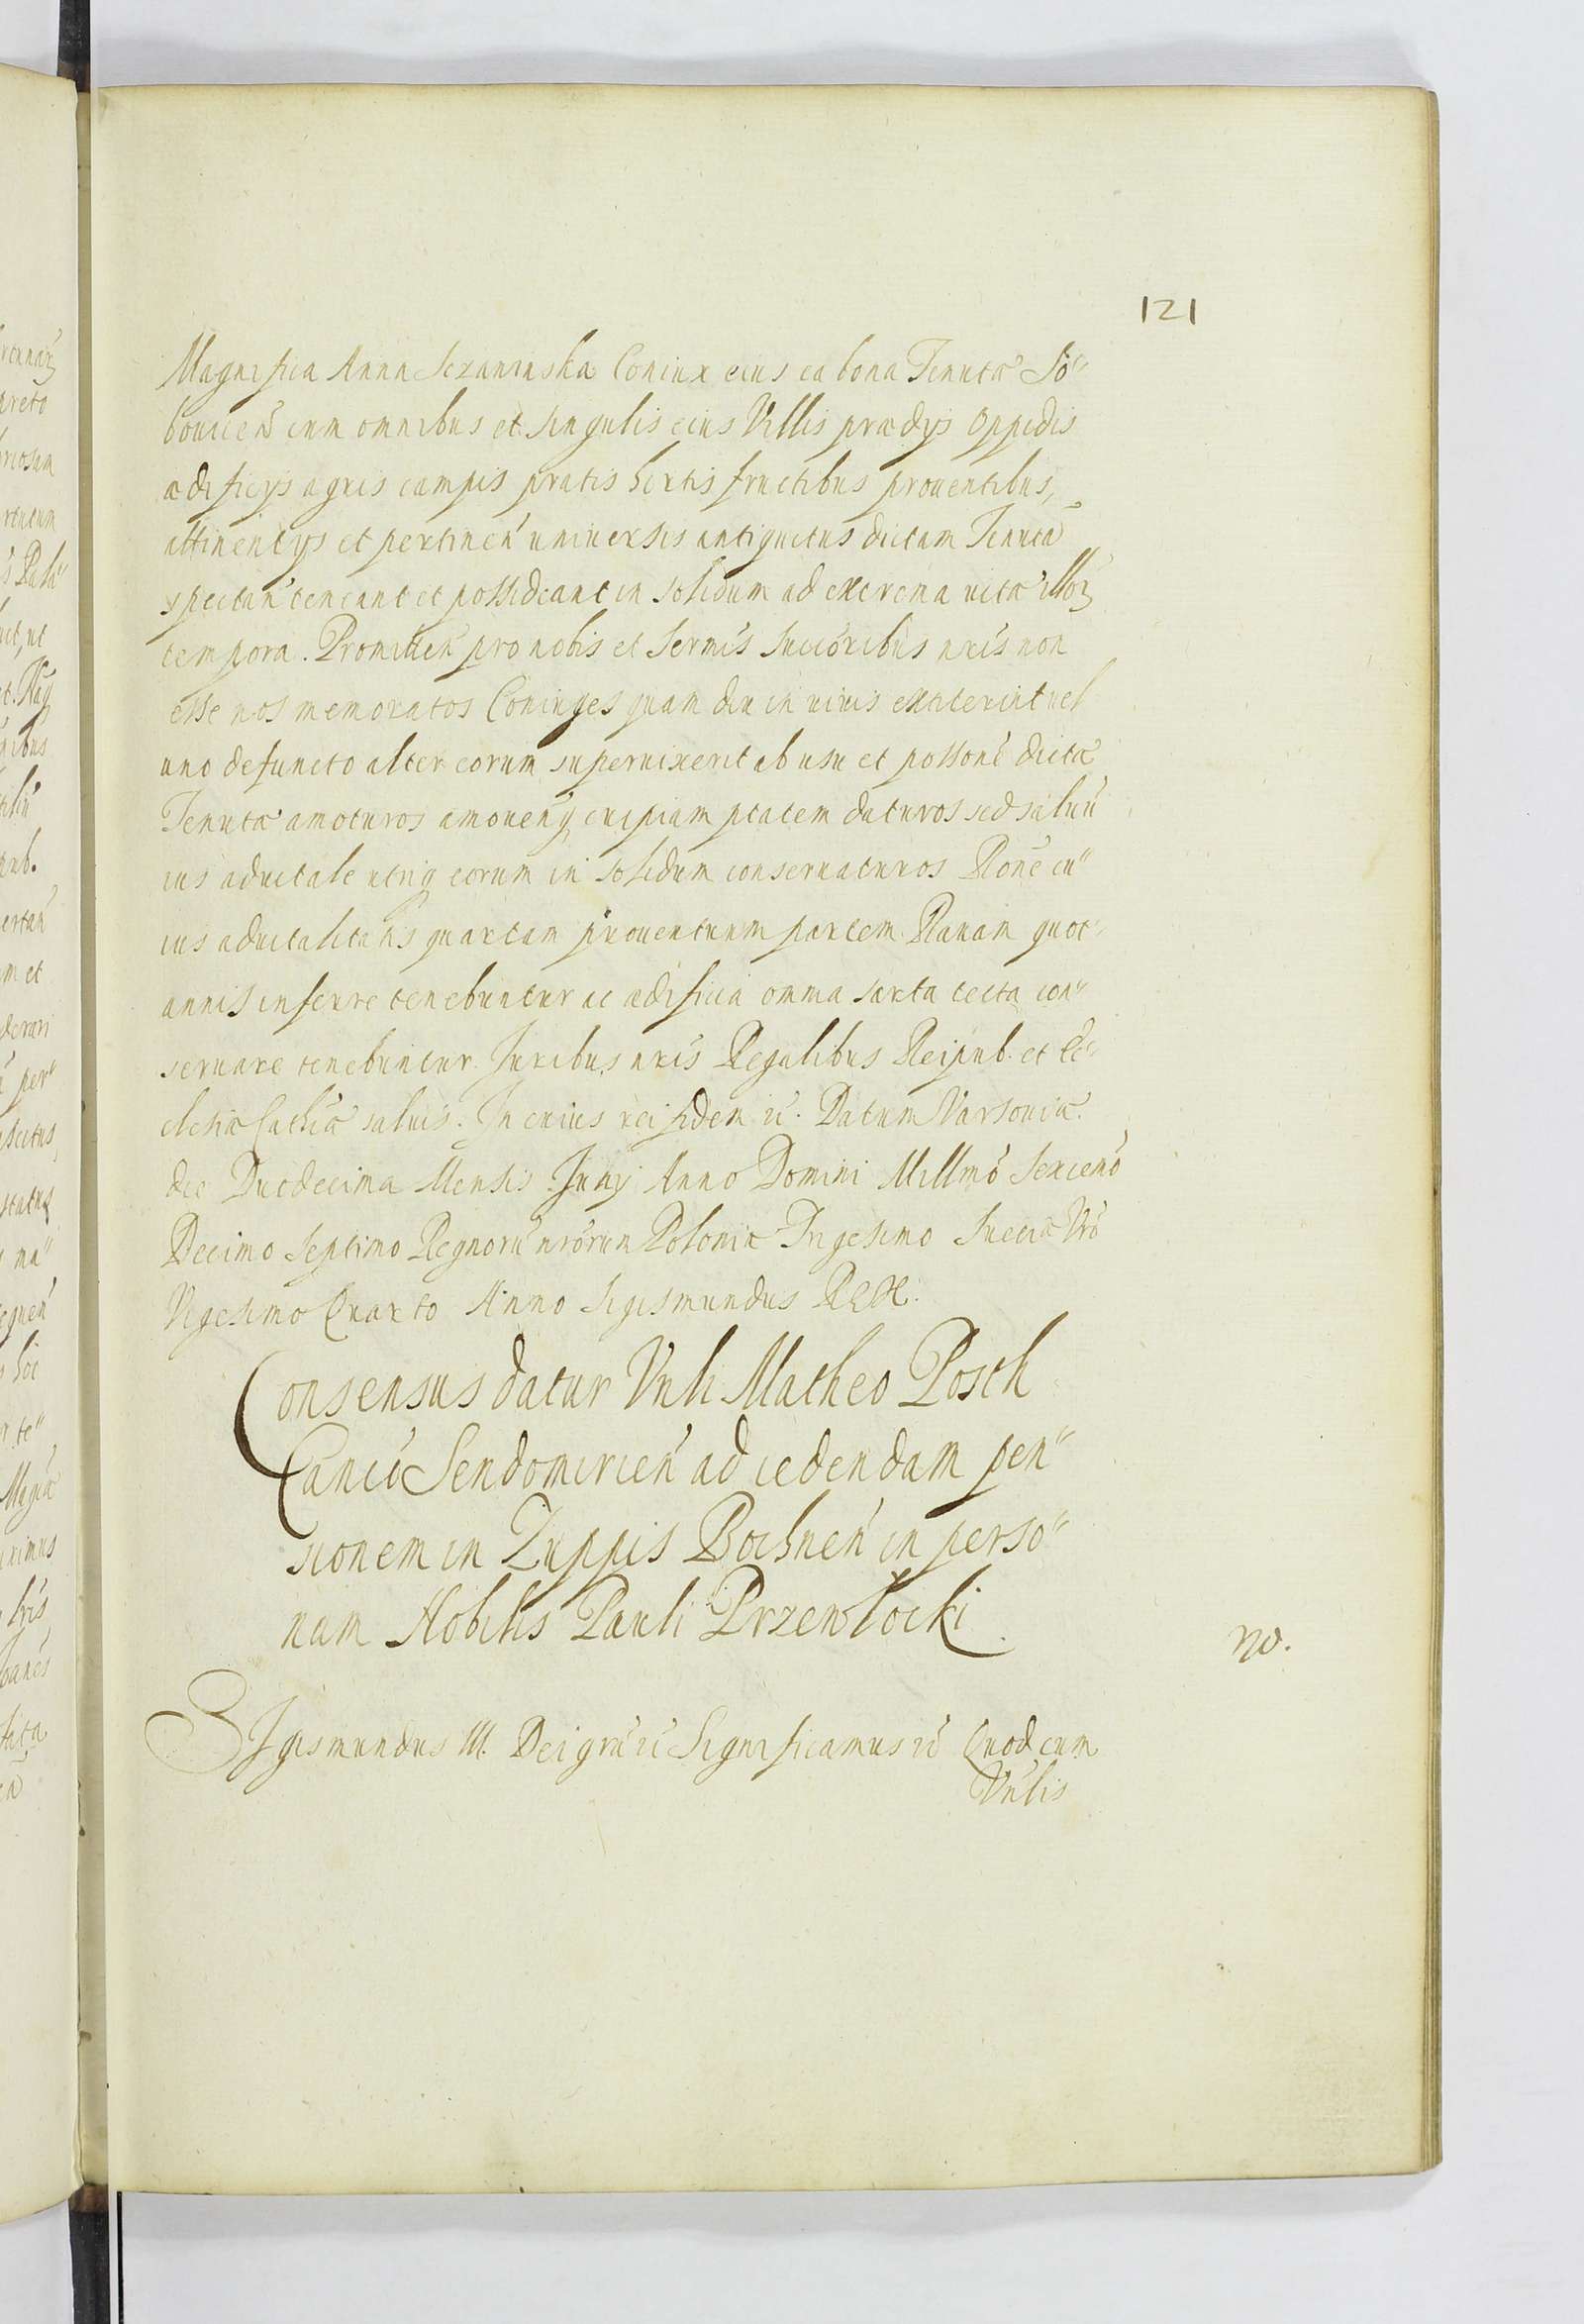 121
Magnifica Anna Sczaninska Coniux eius ea bona Tenutæ So"
bouiceń cum omnibus et singulis eius Villis prædys oppidis
ædificys agris campis pratis hortis fructibus prouentibus,
attinentys et pertineń uniuersis antiquitus dictam Tenutã
spectań teneant et possideant in solidum ad extrema uitæ illoꝝ
tempora. Promitteń pro nobis et Sermis Succoribus nris non
esse nos memoratos Coniuges quam diu in uiuis extiterint uel
uno defuncto alter eorum superuixerit ab usu et possone dictæ
Tenutæ amoturos amouendiq cuipiam ptatem daturos sed saluũ
ius aduitale utriq eorum in solidum conseruaturos Rone cu"
ius aduitalitatis quartam prouentuum partem Rauam quot"
annis inferre tenebuntur ac ædificia omnia sarta tecta con"
seruare tenebuntur. Juribus nris Regalibus Reipub. et Ec"
clesiæ Cathcæ saluis. In cuius rei fidem ec. Datum Varsouiæ.
die Duodecima Mensis Juny Anno Domini Millmo Sexceno
Decimo Septimo Regnorũ nrorum Poloniæ Trigesimo Sueciæ Vro
Vigesimo Quarto Anno Sigismundus REX.
Consensus datur Vnli Matheo Posth
Canco Sendomirień ad cedendam pen"
sionem in Zuppis Bochneń in perso"
nam Nobilis Pauli Przewłocki.
No.
SIgismundus III. Dei gra ec Significamus ec Quod cum
Vnlis